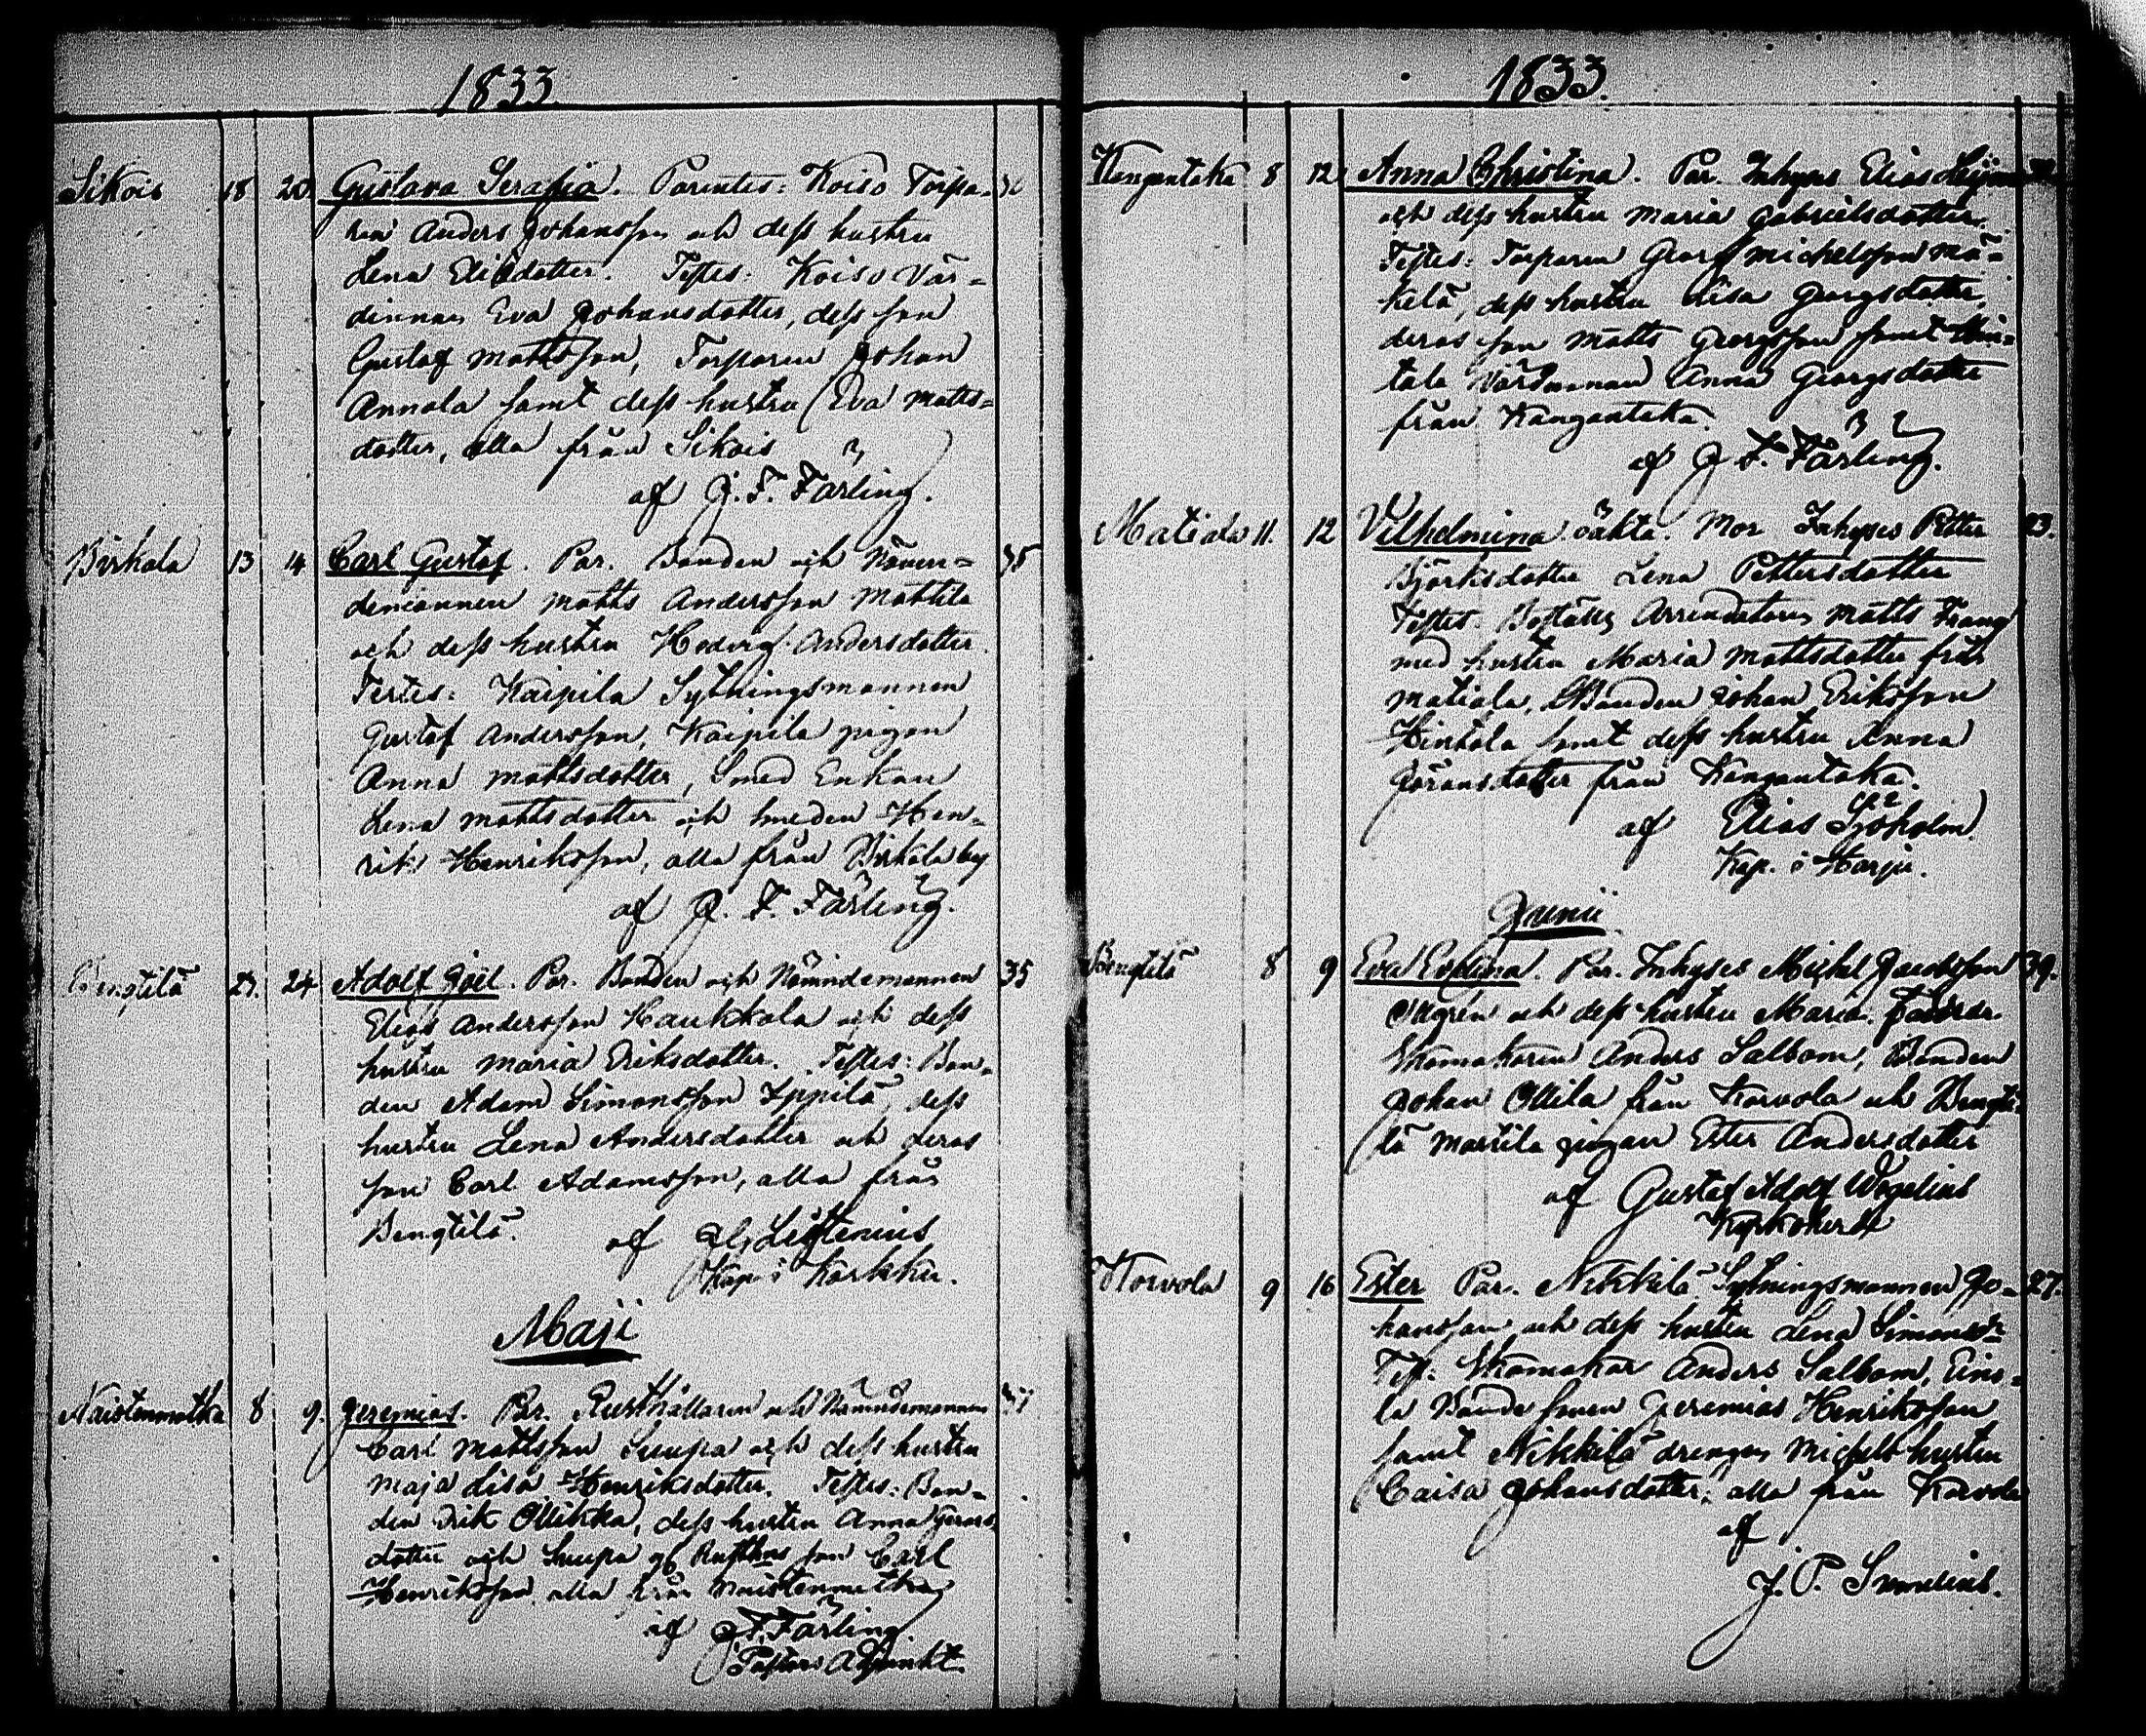 1833.
Sikois 18 20 Gustava Serafia. Parentes: Koiso Torpa-
ren Anders Johansson och dess hustru
Lena Elisdotter. Testes: Koiso Vär-
dinnan Eva Johansdotter, dess son
Gustaf Mattsson, Torparen Johan
Annala samt dess hustru Eva Matts-
dotter, alla från Sikois
af J. F. Färling.
Birkala 13 14 Carl Gustaf. Par. Bonden och Nämn-
demannen Matts Andersson Mattila 35
och dess hustru Hedvig Andersdotter.
Testes: Kaipila Sytningsmannen
Gustaf Andersson, Kaipila pigan
Anna Mattsdotter, Smed Enkan
Lena Mattsdotter och smeden Hen-
rik Henriksson, alla från Birkala by
af J. F. Färling.
Bengtilä 23. 24 Adolf Joel. Par. Bonden och Nämndemannen 35
Elias Andersson Haukkola och dess
hustru Maria Eriksdotter. Testes: Bon-
den Adam Simonsson Yppilä, dess
hustru Lena Andersdotter och deras
son Carl Adamsson, alla från
Bengtilä. af Listenius
Kap. i Karkku.
Maji
Naistenmatka 8 9. Jeremias. Par. Rusthållaren och Nämndemannen
Carl Mattsson Suupa och dess hustru
Maja Lisa Henriksdotter. Testes: Bon-
den Erik Ollikka, dess hustru Anna
dotter och Suupa son Carl
Henriksson, alla från Naistenmatka
af J. F. Färling
Pastors Adjunkt.
1833.
Kangantaka 8 12 Anna Christina. Par. Inhyses Elias
och dess hustru Maria Gabrielsdotter.
Testes: Torparen Georg Michelsson Mä-
kelä, dess hustru Lisa Georgsdotter,
deras son Matts Georgsson samt Hin-
tala Värdinnan Anna Georgsdotter
från Kangantaka.
af J. F. Färling.
Matiala 11. 12 Vilhelmina oäkta. Mor Inhyses Petter 23.
Björksdotter Lena Pettersdotter
Testes. Boställs Arrendatorn Matts Frang
med hustru Maria Mattsdotter från
Matiala, Bonden Johan Eriksson
Hintala samt dess hustru Anna
Göransdotter från Kangantaka.
af Elias Sjöholm
Kap. i Harju.
Junii
Bengtilä 8 9 Eva Evelina. Par. Inhyses Michel Jacobsson 39.
och dess hustru Maria.
Skomakaren Anders Salbom, Bonden
Johan Ollila från Korvola och Bengti-
lä Marttila pigan Ester Andersdotter
af Gustaf Adolf Wegelius
Kyrkoherde
Korvola 9 16 Ester Par. Nikkilä Sytningsmannen Jo- 27.
hansson och dess hustru Lena Simonsdr
Test: Skomakar Anders Salbom, Eino-
la Bonde sonen Jeremias Henriksson
samt Nikkilä drengen Michels hustru
Caisa Johansdotter, alla från Korvola
af
J. P. Smalius.